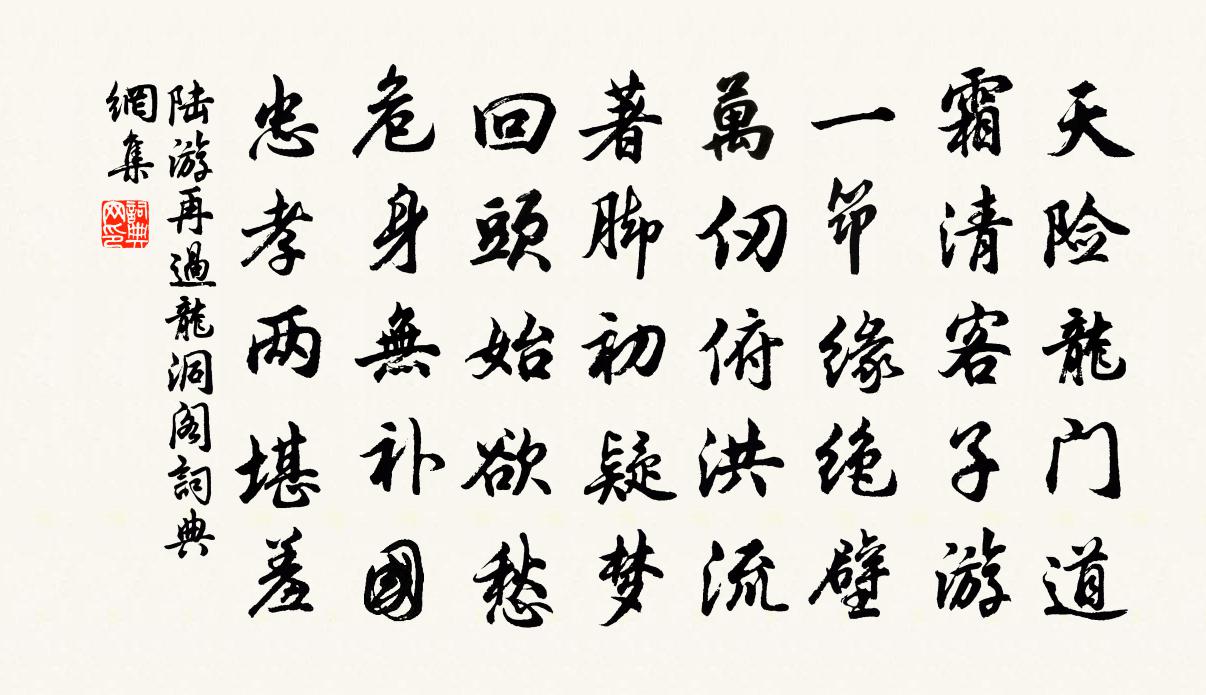 天险龍门道
霜清客子游
一笻缘绝壁
萬仞俯洪流
著脚初疑梦
回頭始欲愁
危身無补國
忠孝两堪羞
陆游再過龍洞阁詞典
網集
詞典
网印